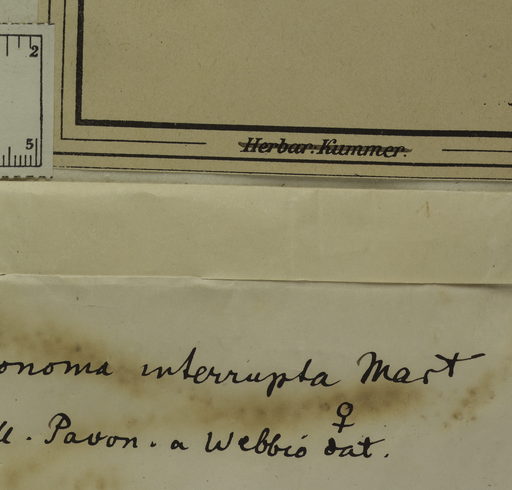 2
5
Herbar. Kummer.
onoma interrupta Mart
♀
. Pavon. a Webbio dat.